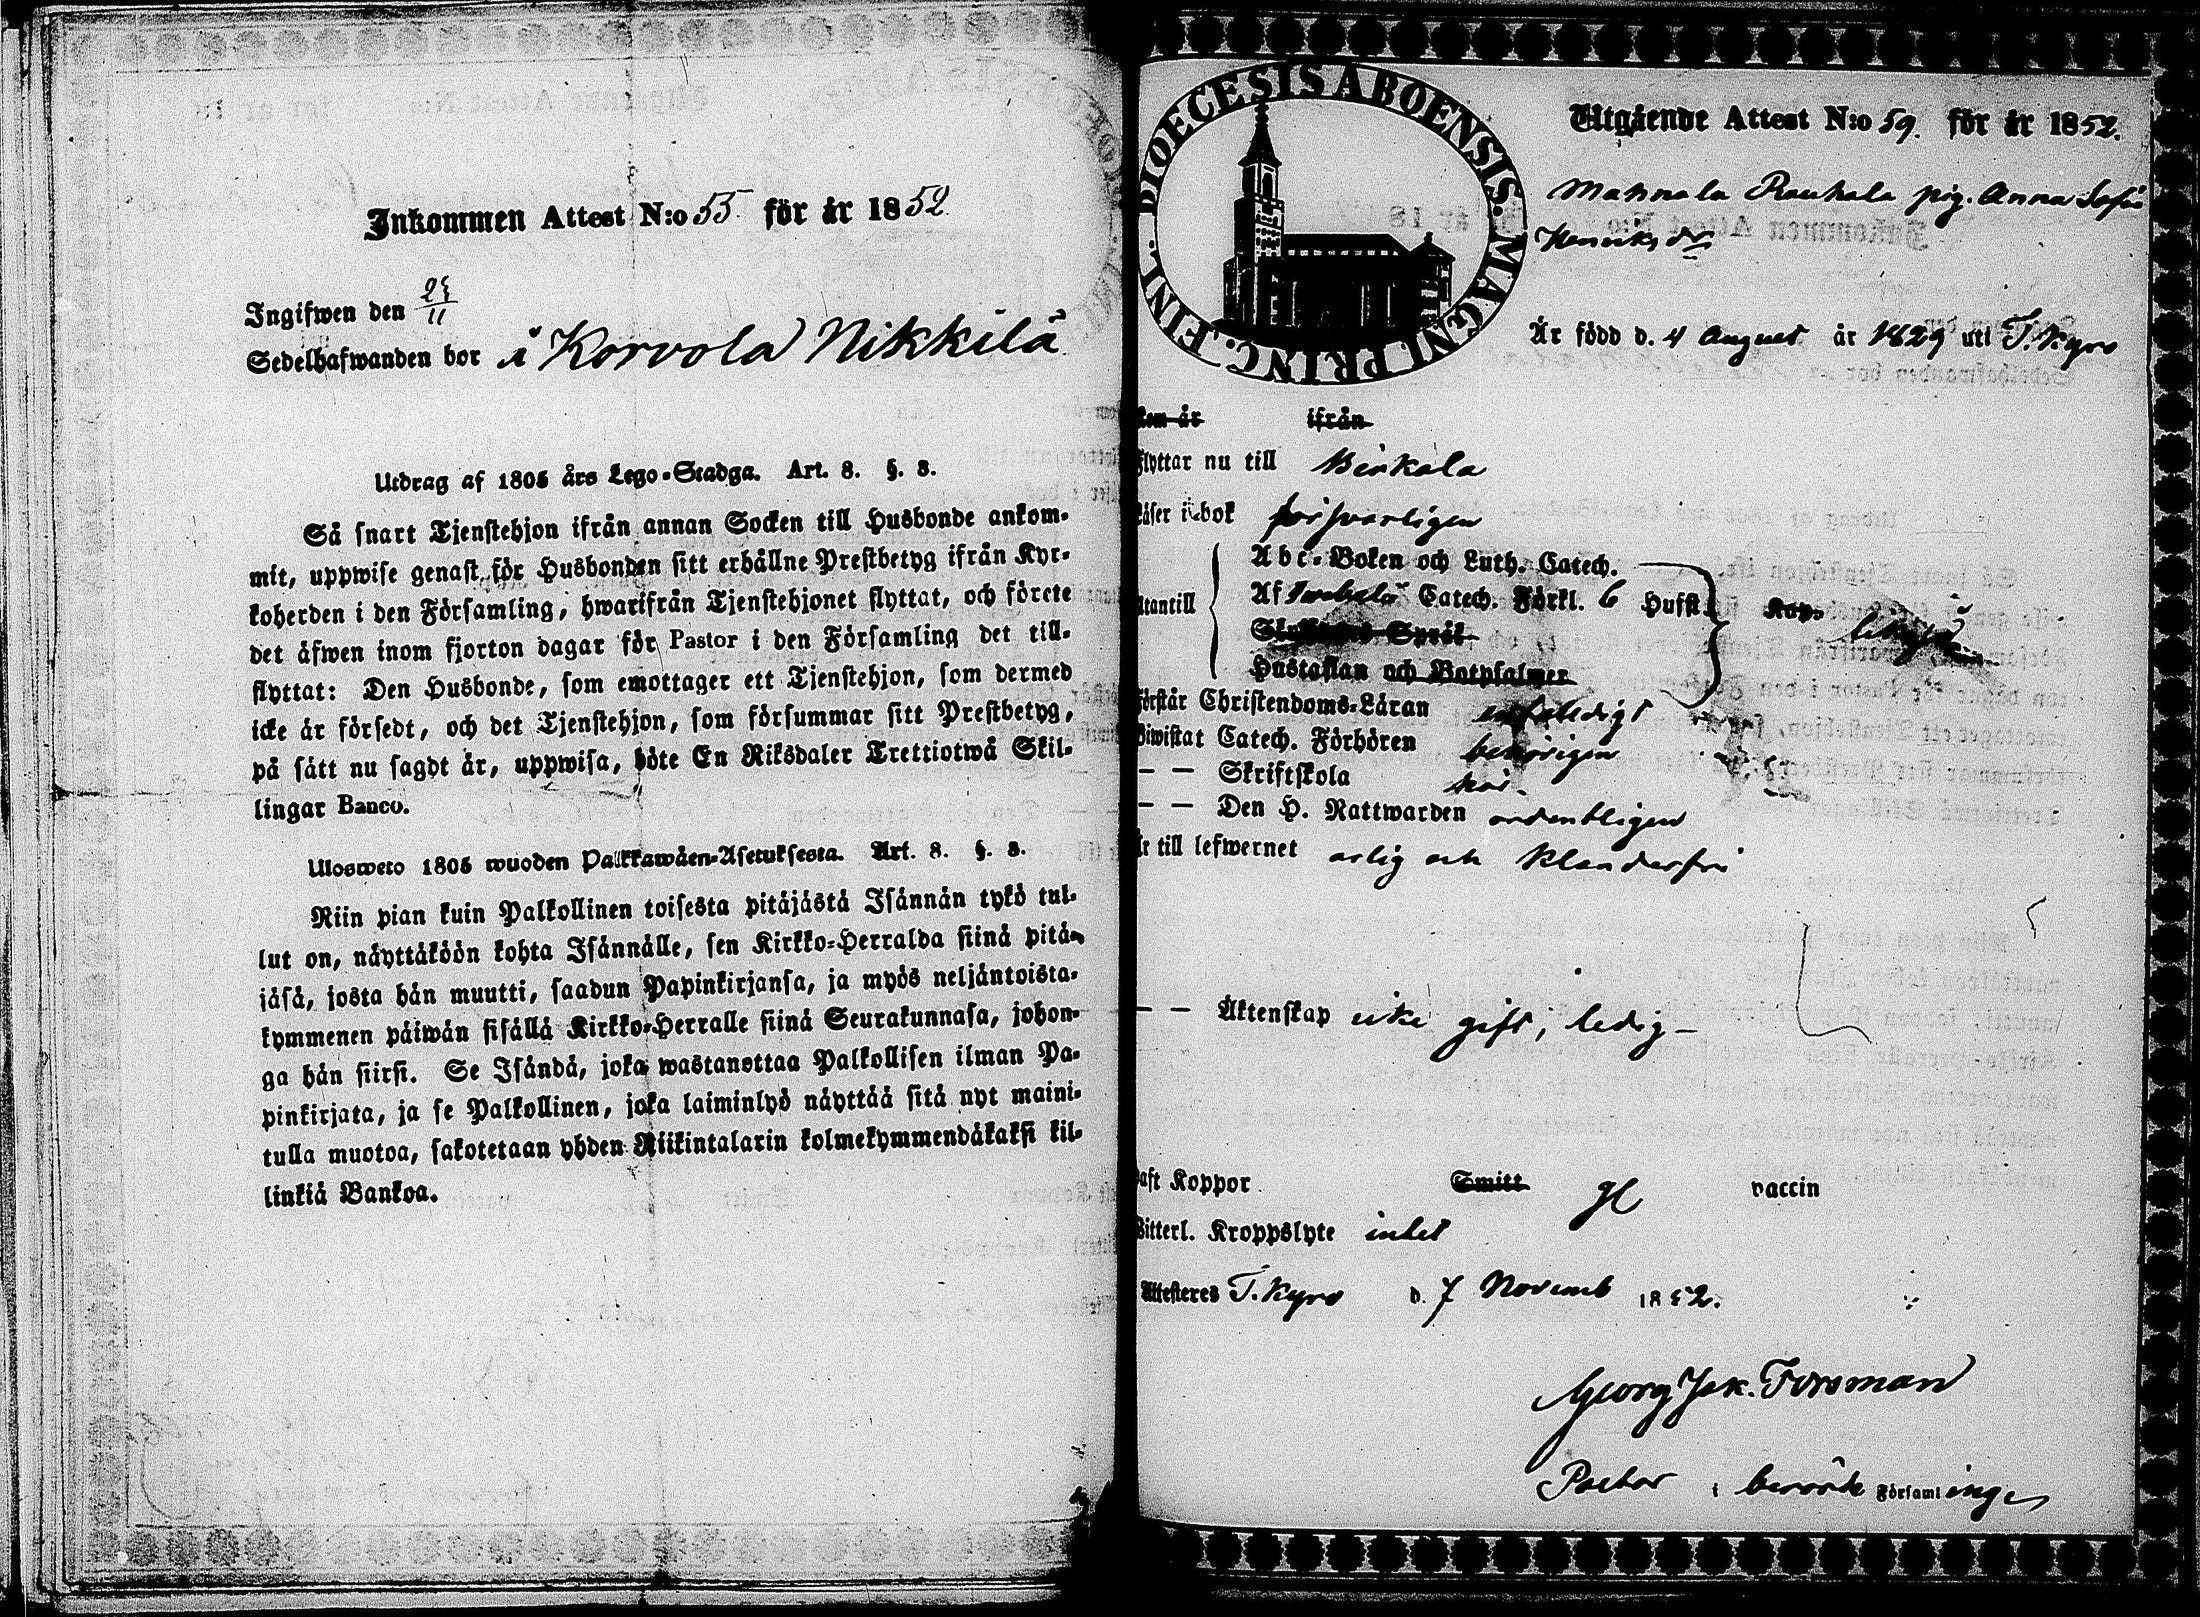 Inkommen Attest N:o 55. för år 1852.
Ingifwen den 25/11
Sedelhafwanden bor i Korvola Nikkilä
Utdrag af 1805 års Lego-Stadga. Art. 8. §. 3.
Så snart Tjenstehjon ifrån annan Socken till Husbonde ankom-
mit, uppwise genast för Husbonden sitt erhållne Prestbetyg ifrån Kyr-
koherden i den Församling, hwarifrån Tjenstehjonet flyttat, och förete
det äfwen inom fjorton dagar för Pastor i den Församling det till-
flyttat: Den Husbonde, som emottager ett Tjenstehjon, som dermed
icke är försedt, och det Tjenstehjon, som försummar sitt Prestbetyg,
på sätt nu sagdt är, uppwisa, böte En Riksdaler Trettiotwå Skil-
lingar Banco.
Ulosweto 1805 wuoden Palkkawäen-Asetuksesta. Art. 8. §. 3.
Niin pian kuin Palkollinen toisesta pitäjästä Isännän tykö tul-
lut on, näyttäköön kohta Isännälle, sen Kirkko-Herralda siinä pitä-
jäsä, josta hän muutti, saadun Papinkirjansa, ja myös neljäntoista-
kymmenen päiwän sisällä Kirkko-Herralle siinä Seurakunnasa, johon-
ga hän siirsi. Se Isändä, joka wastanottaa Palkollisen ilman Pa-
pinkirjata, ja se Palkollinen, joka laiminlyö näyttää sitä nyt maini-
tulla muotoa, sakotetaan yhden Riikintalarin kolmekymmendäkaksi kil-
linkiä Bankoa.
DIOECESIS ABOENSIS. MAGNI PRINC. FINL.
Utgående Attest N:o 59. för år 1852.
Mahnala Rauhala pig. Anna Sofia
Henriksdr
Är född d. 4 August år 1829 uti T. Kyro
kom år ifrån
Flyttar nu till Birkala
Läser i bok försvarligen
Abc-Boken och Luth. Catech.
Utantill Af Catech. Förkl. 6 Hufst.
Språk
Hustaflan och Botpsalmer
Förstår Christendoms-Läran
Biwistat Catech. Förhören behörigen
— — Skriftskola
— — Den H. Nattwarden ordentligen
Är till lefwernet ärlig och klanderfri
— — Äktenskap icke gift; ledig —
Haft Koppor Smitt vaccin
Witterl. Kroppslyte intet
Attesteres T. Kyro d. 7 Novemb 1852.
Georg Jak. Forsman
Pastor i berörde Församlingen